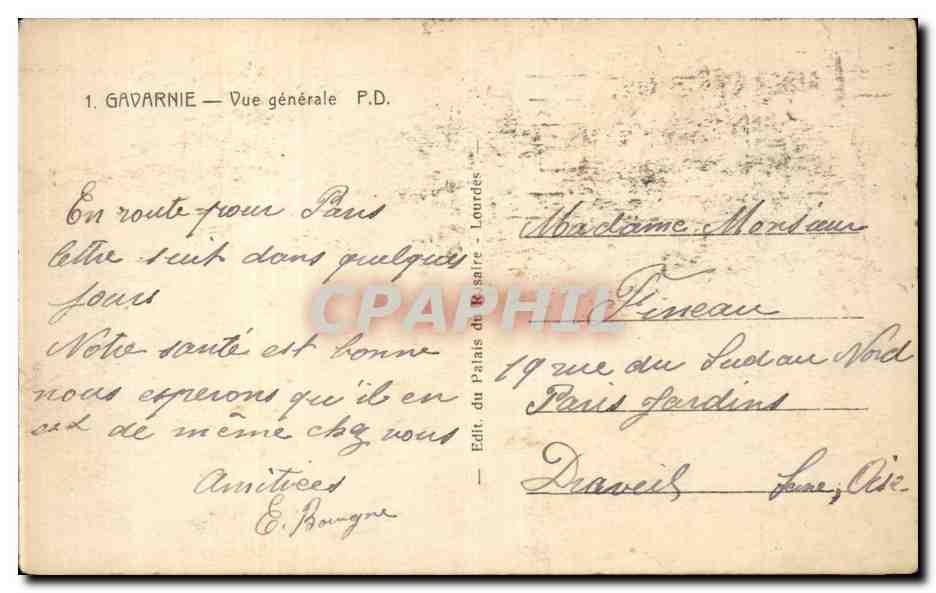 1. GAVARNIE — Vue générale P.D.
En route pour Paris
lettre suit dans quelques
jours
Notre santé est bonne
nous esperons qu'il en
est de même chez vous
Amitiées
E. Bourgne
— Edit. du Palais du Rosaire - Lourdes —
Madame Monsieur
Fineau
19 rue du Sud au Nord
Paris Jardins
Draveil Seine, Oise
CPAPHIL